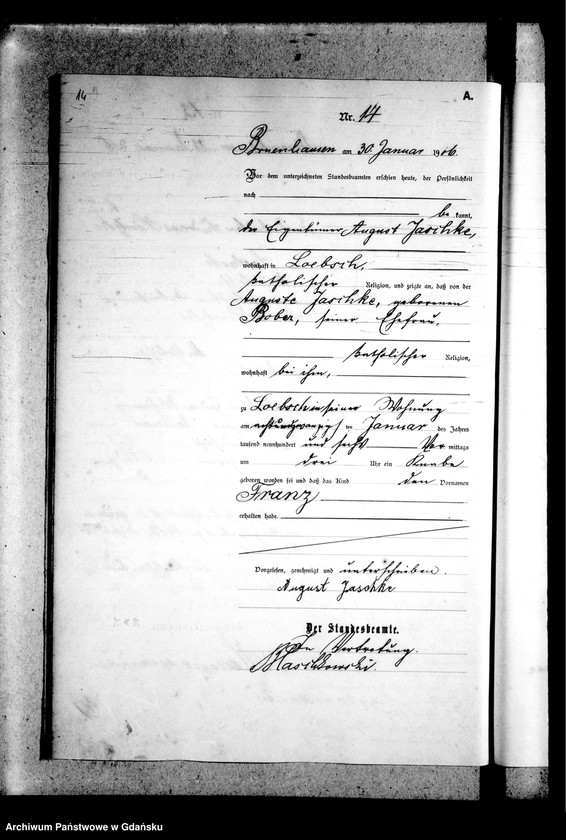 14
A.
Nr. 14
am 30. Januar 1906.
Vor dem unterzeichneten Standesbeamten erschien heute, der Persönlichkeit
nach
be kannt,
der Eigentümer August Jaschke,
wohnhaft in Loebsch,
katholischer Religion, und zeigte an, daß von der
Auguste Jaschke, geborenen
Bober, seiner Ehefrau,
katholischer Religion,
wohnhaft bei ihm,
zu Loebsch in seiner Wohnung
am achtundzwanzigsten Januar des Jahres
tausend neunhundert und sechs Vor mittags
um drei Uhr ein Knabe
geboren worden sei und daß das Kind den Vornamen
Franz
erhalten habe.
Vorgelesen, genehmigt und unterschrieben.
August Jaschke
Der Standesbeamte.
In Vertretung.
Archiwum Państwowe w Gdańsku